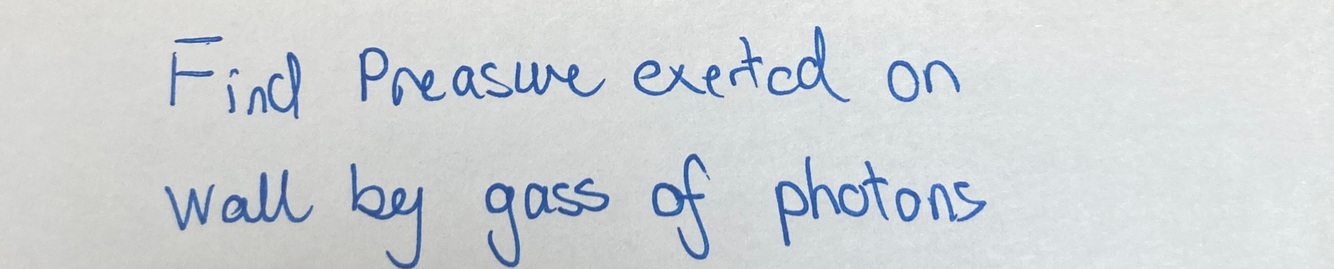 Find Preasure exerted on
wall by gass of photons